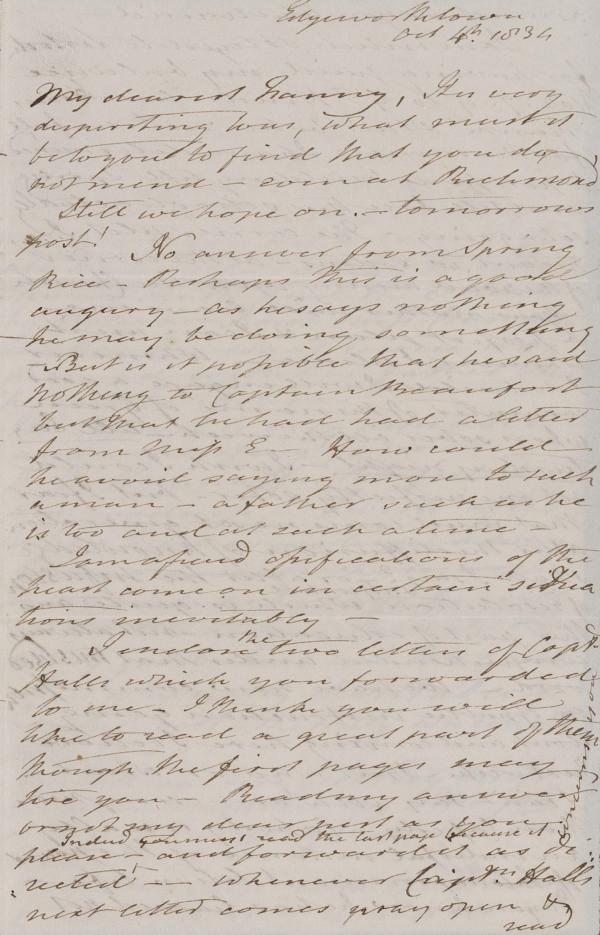 Edgeworthstown
Oct 4th. 1834
My dearest Fanny, It is very
dispiriting to us, what must it
be to you to find that you do
not mend - even at Richmond
Still we hope on. - tomorrows
post!
No answer from Spring
Rice - Perhaps this is a good
augury - as he says nothing
he may be doing something
- But is it possible that he said
nothing to Captain Beaufort
but that he had had a letter
from Miss E - How could
he avoid saying more to such
a man - a father such as he
is too and at such a time -
I am afraid ossifications of the
heart come on in certain situa
tions inevitably -
I enclose the two letters of Capt.
Halls which you forwarded
to me - I think you will
like to read a great part of them
though the first pages may
tire you - Read my answer
or not my dearest as you
Indeed you must read the last page because it
concerns you
please - and forward it as di
rected - - Whenever Captn. Halls
next letter comes pray open &
read